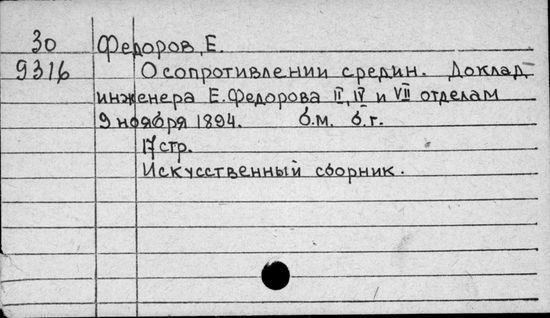 30 Федоров, Е.
9316 О сопротивлении средин. Доклад
инженера Е. Федорова II, IV и VII отделам
9 ноября 1894. б.м. б.г.
17 стр.
Искусственный сборник.